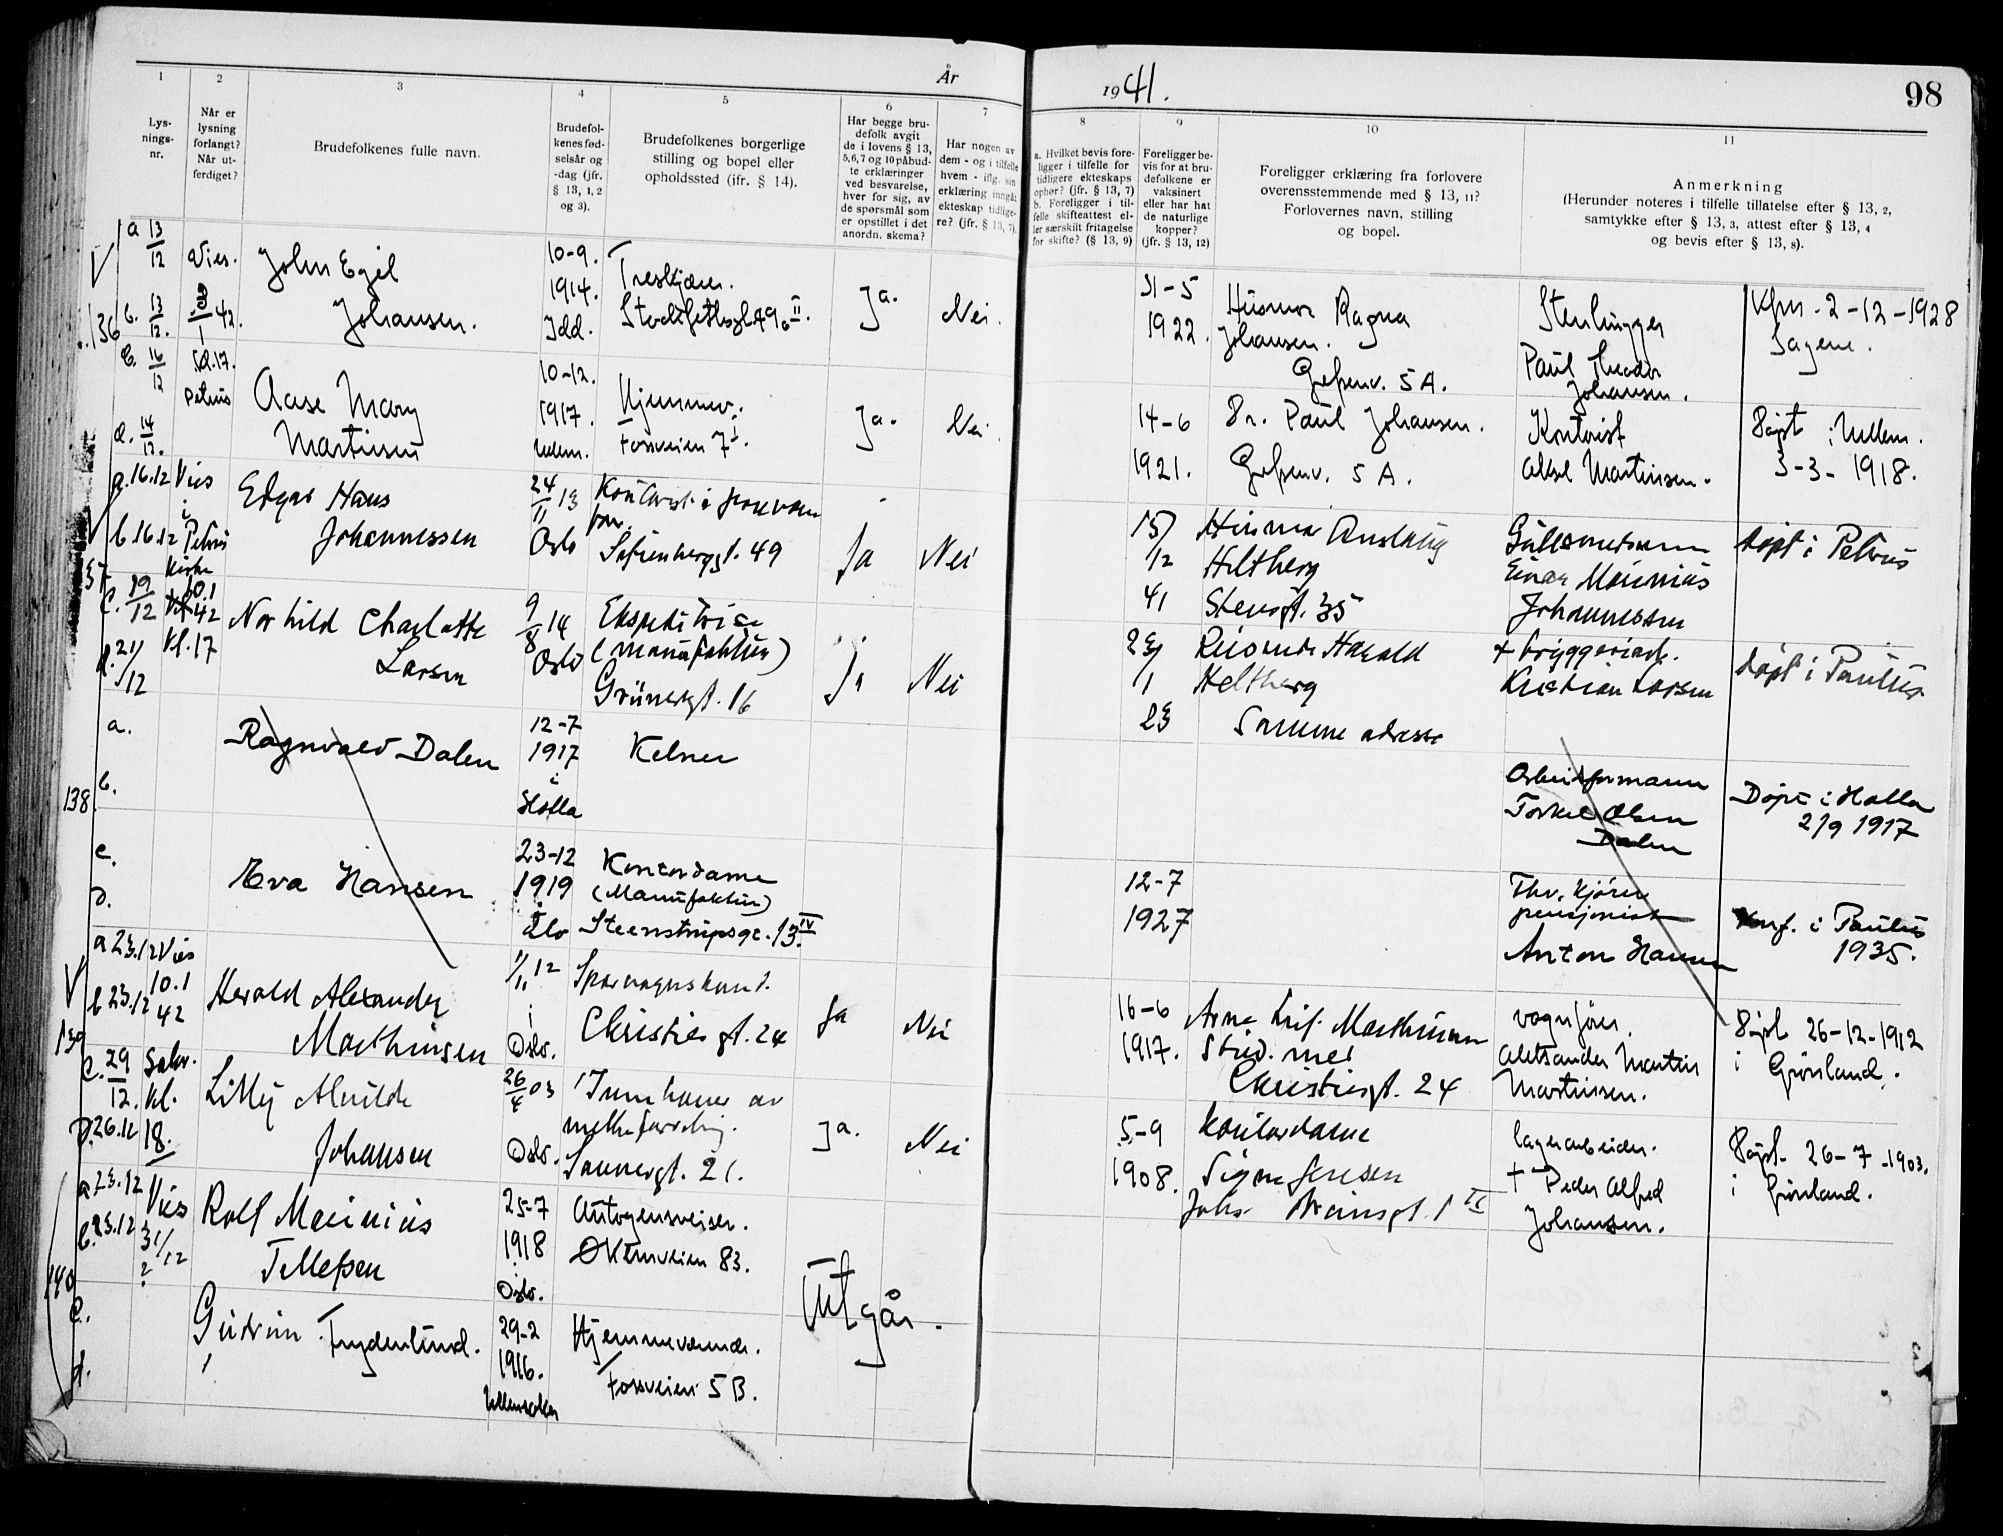 År 1941.
98
1
2
3
4
5
6
7
8
9
10
11
Lys-
nings-
nr.
Når er
lysning
forlangt?
Når ut-
ferdiget?
Brudefolkenes fulle navn.
Brudefol-
kenes fød-
selsår og
-dag (jfr.
§ 13, 1, 2
og 3).
Brudefolkenes borgerlige
stilling og bopel eller
opholdssted (ifr. § 14).
Har begge bru-
defolk avgit
de i lovens § 13,
5,6,7 og 10 påbud-
te erklæringer
ved besvarelse,
hver for sig, av
de spørsmål som
er opstillet i det
anordn. skema?
Har nogen av
dem - og i tilfelle
hvem - iflg. sin
erklæring inngått
ekteskap tidlige-
re? (jfr. § 13, 7).
a. Hvilket bevis fore-
ligger i tilfelle for
tidligere ekteskaps
ophør? (jfr. § 13, 7)
b. Foreligger i til-
felle skifteattest el-
ler særskilt fritagelse
for skifte? (§ 13, 9)
Foreligger be-
vis for at bru-
defolkene er
vaksinert
eller har hat
de naturlige
kopper?
(jfr. § 13, 12)
Foreligger erklæring fra forlovere
overensstemmende med § 13, 11?
Forlovernes navn, stilling
og bopel.
Anmerkning
(Herunder noteres i tilfelle tillatelse efter § 13, 2,
samtykke efter § 13, 3, attest efter § 13, 4
og bevis efter § 13, 8).
136
a 13/12
b. 13/12.
c. 16/12
d. 14/12.
Vies.
3/1 42.
kl. 17.
Petrus
John Egil
Johansen.
10-9.
1914.
Idd.
Treskjærer.
49 a II.
Ja.
Nei.
31-5
1922.
Husmor Ragna
Johansen.
Grefsenv. 5 A.
Stenhugger
Paul Theodor
Johansen.
Kfm. 2-12-1928
Sagene.
Aase Mary
Martinsen
10-12.
1917.
Ullern.
Hjemmev.
Fossveien 7 I.
Ja.
Nei.
14-6
1921.
Sn. Paul Johansen.
Grefsenv. 5 A.
Kontorist
Aksel Martinsen.
Døpt i Ullern.
3-3-1918.
a. 16.12
b. 16.12
c. 19/12
d. 21/12
Vies
i
Petrus
kirke
10.1
42
kl. 17
Edgar Hans
Johannessen
24/11 13
Oslo
Kontorist i
Sofienberggt. 49
Ja
Nei
15/
12
41
Husmor Aaslaug
Heltberg
Stensgt. 35
Gullsmedsvenn
Einar Marinius
Johannessen
døpt i Petrus
Norhild Charlotte
Larsen
9/8 14
Oslo
Ekspeditrise
(manufaktur)
Grünersgt. 16
Ja
Nei
23/
1
23
Reisende Harald
Heltberg
Samme adresse
+ bryggeriarb.
Kristian Larsen
døpt i Paulus
138.
a.
b.
c.
d.
Ragnvald Dalen
12-7
1917
i
Holla
Kelner
Arbeidsformann
Torkel Olsen
Dalen
Døpt i Holla
2/9 1917
Eva Hansen
23-12
1919
i
Oslo
Kontordame
(Manufaktur)
Steenstrupsgt. 13 IV
12-7
1927
Thv. Kjören
pensjonist
Anton Hansen
Konf. i Paulus
1935.
139
a 23.12
b 23.12
c. 29/12.
d. 26.12
Vies
10.1
42
Sakr.
kl.
18.
Harald Alexander
Marthinsen
1/11 12
i
Oslo.
Sporvognskond.
Christies gt. 24
Ja
Nei
16-6
1917.
Arne Leif Marthinsen
Stud. med
Christiesgt. 24
vognfører.
Aleksander Martin
Martinsen.
Døpt 26-12-1912
i Grønland.
Lilly Alvilde
Johansen
26/4 03
Oslo.
Innehaver av
melkeforretning.
Sannergt. 21.
Ja.
Nei
5-9
1908.
Kontordame
Signe Jensen
Johs. Brunsgt. 1 II
lagerarbeider.
+ Peder Alfred
Johansen.
Døpt 26-7-1903.
i Grønland.
140
a 23.12
b. 23.12
c.
d.
Vies
31/12
?
Rolf Marinius
Tellefsen
25-7
1918
i
Oslo.
Autogensveiser.
Økernveien 83.
Utgår.
Gudrun Frydenlund.
29-2
1916.
Ullensaker
Hjemmeværende.
Fossveien 5 B.